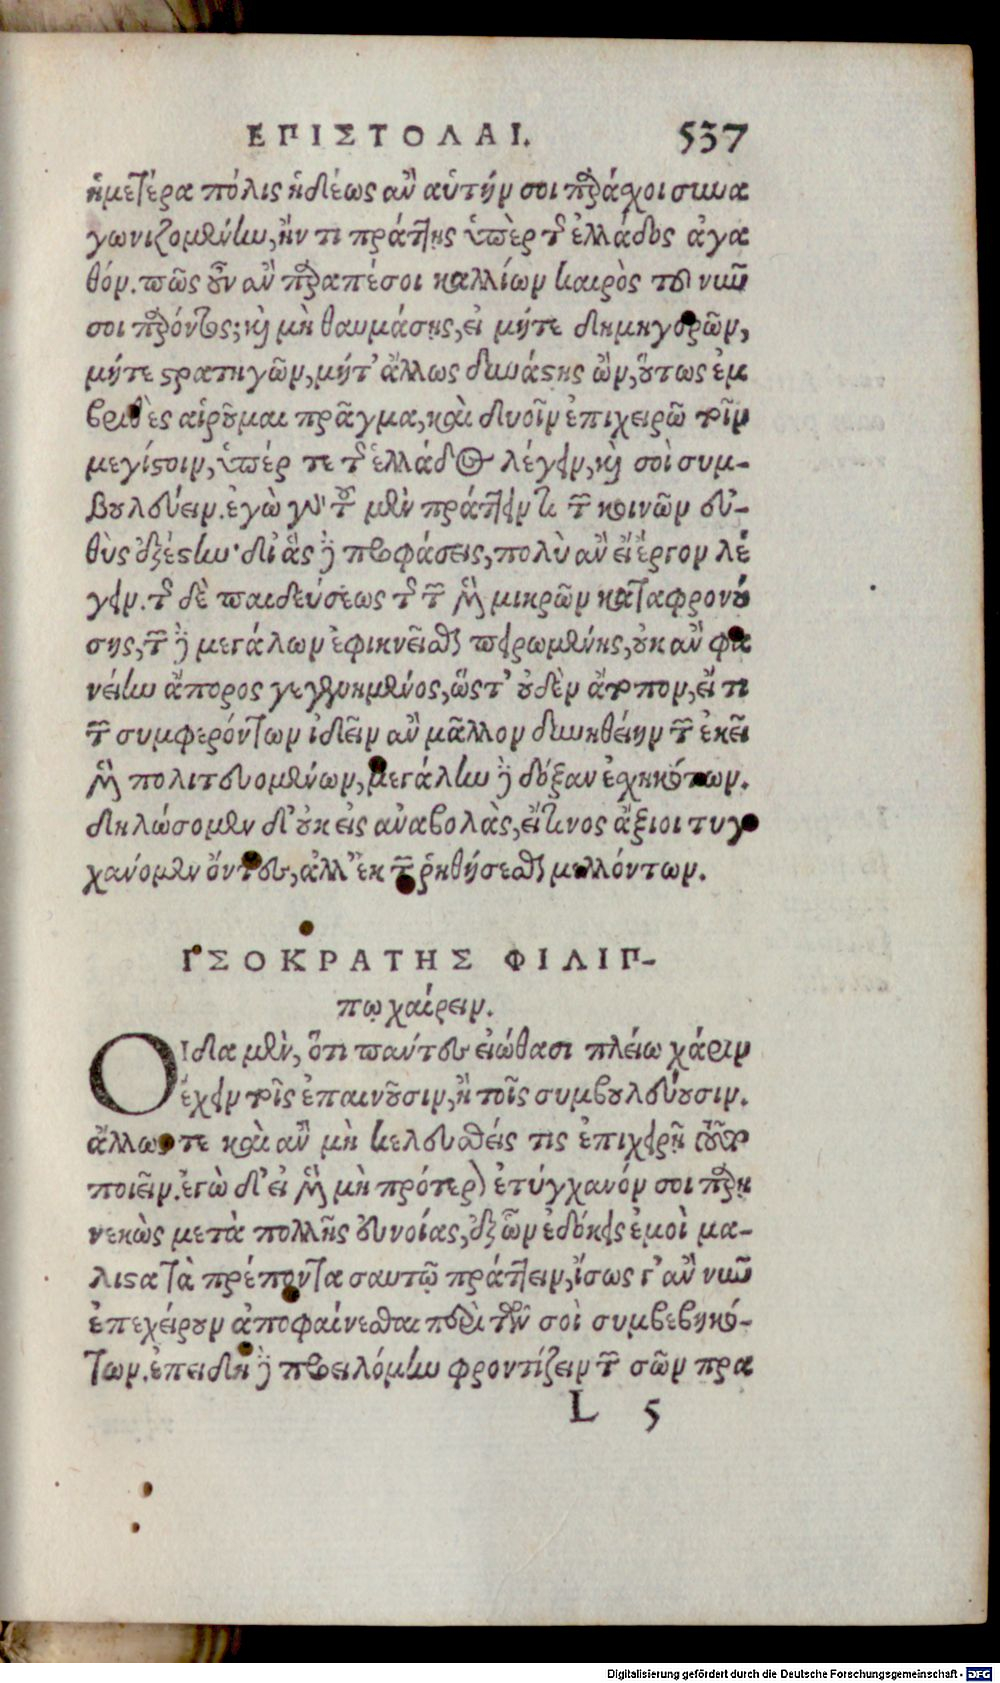 ΕΠΙΣΤΟΛΑΙ. 537
ἡμετέρα πόλις ἡδέως ἂν αὑτήν σοι παράσχοι συνα
γωνιζομένην, ἤν τι πράττης ὑπὲρ τῆς ἑλλάδος ἀγα
θόν. πῶς οὖν ἂν παραπέσοι καλλίων καιρὸς τοῦ νῦν
σοι παρόντος; καὶ μὴ θαυμάσης, εἰ μήτε δημηγορῶν,
μήτε στρατηγῶν, μήτ' ἄλλως δυνάστης ὢν, οὕτως ἐμ
βριθὲς αἱροῦμαι πρᾶγμα, καὶ δυοῖν ἐπιχειρῶ τοῖν
μεγίστοιν, ὑπέρ τε τῆς ἑλλάδος λέγειν, καὶ σοὶ συμ-
βουλεύειν. ἐγὼ γὰρ τοῦ μὲν πράττειν τι τῶν κοινῶν εὐ-
θὺς ἐξέστην· δι' ἃς δὲ προφάσεις, πολὺ ἂν εἴη ἔργον λέ
γειν. τῆς δὲ παιδεύσεως τῆς τῶν μὲν μικρῶν καταφρονού
σης, τῶν δὲ μεγάλων ἐφικνεῖσθαι πειρωμένης, οὐκ ἂν φα
νείην ἄπορος γεγενημένος, ὥστ' οὐδὲν ἄτοπον, εἴ τι
τῶν συμφερόντων ἰδεῖν ἂν μᾶλλον δυνηθείην τῶν ἐκεῖ
μὲν πολιτευομένων, μεγάλην δὲ δόξαν ἐχηκότων.
δηλώσομεν δ' οὐκ εἰς ἀναβολὰς, εἴ τινος ἄξιοι τυγ
χάνομεν ὄντες, ἀλλ' ἐκ τῶν ῥηθήσεσθαι μελλόντων.
ΙΣΟΚΡΑΤΗΣ ΦΙΛΙΠ-
πῳ χαίρειν.
ΟΙδα μὲν, ὅτι πάντες εἰώθασι πλείω χάριν
ἔχειν τοῖς ἐπαινοῦσιν, ἢ τοῖς συμβουλεύουσιν.
ἄλλως τε καὶ ἂν μὴ κελευσθείς τις ἐπιχειρῇ τοῦτο
ποιεῖν. ἐγὼ δ' εἰ μὲν μὴ πρότερον ἐτύγχανόν σοι παρη
νεκὼς μετὰ πολλῆς εὐνοίας, ἐξ ὧν ἐδόκεις ἐμοὶ μά-
λιστα τὰ πρέποντα σαυτῷ πράττειν, ἴσως γ' ἂν νῦν
ἐπεχείρουν ἀποφαίνεσθαι περὶ τῶν σοὶ συμβεβηκό-
των. ἐπειδὴ δὲ προειλόμην φροντίζειν τῶν σῶν πρα
L 5
Digitalisierung gefördert durch die Deutsche Forschungsgemeinschaft - DFG